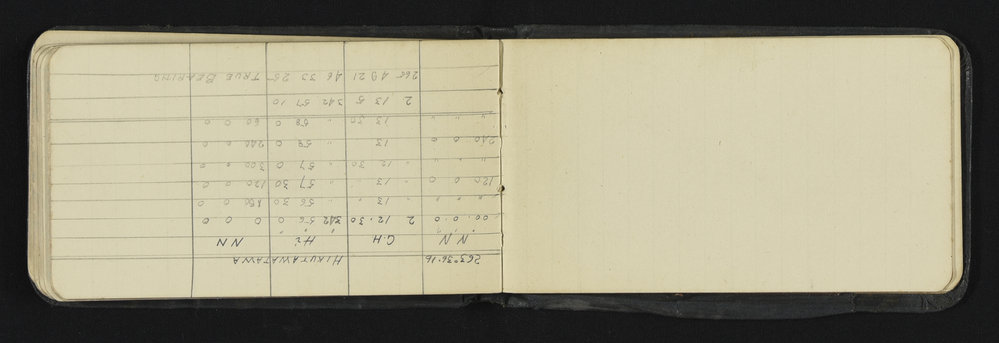 263°36.16 HIKUTAWATAWA
N N G.H Hi N N
00.0.0 2 12.30 342 56 0 0 0 0
" " " " 13 " " 56 30 180 0 0
120 0 0 " 13 " " 57 30 120 0 0
" " " " 12 30 " 57 0 300 0 0
240 0 0 13 " 58 0 240 0 0
" " " 13 30 " 58 0 60 0 0
2 13 5 342 57 10
265 49 21 46 33 25 TRUE BEARING